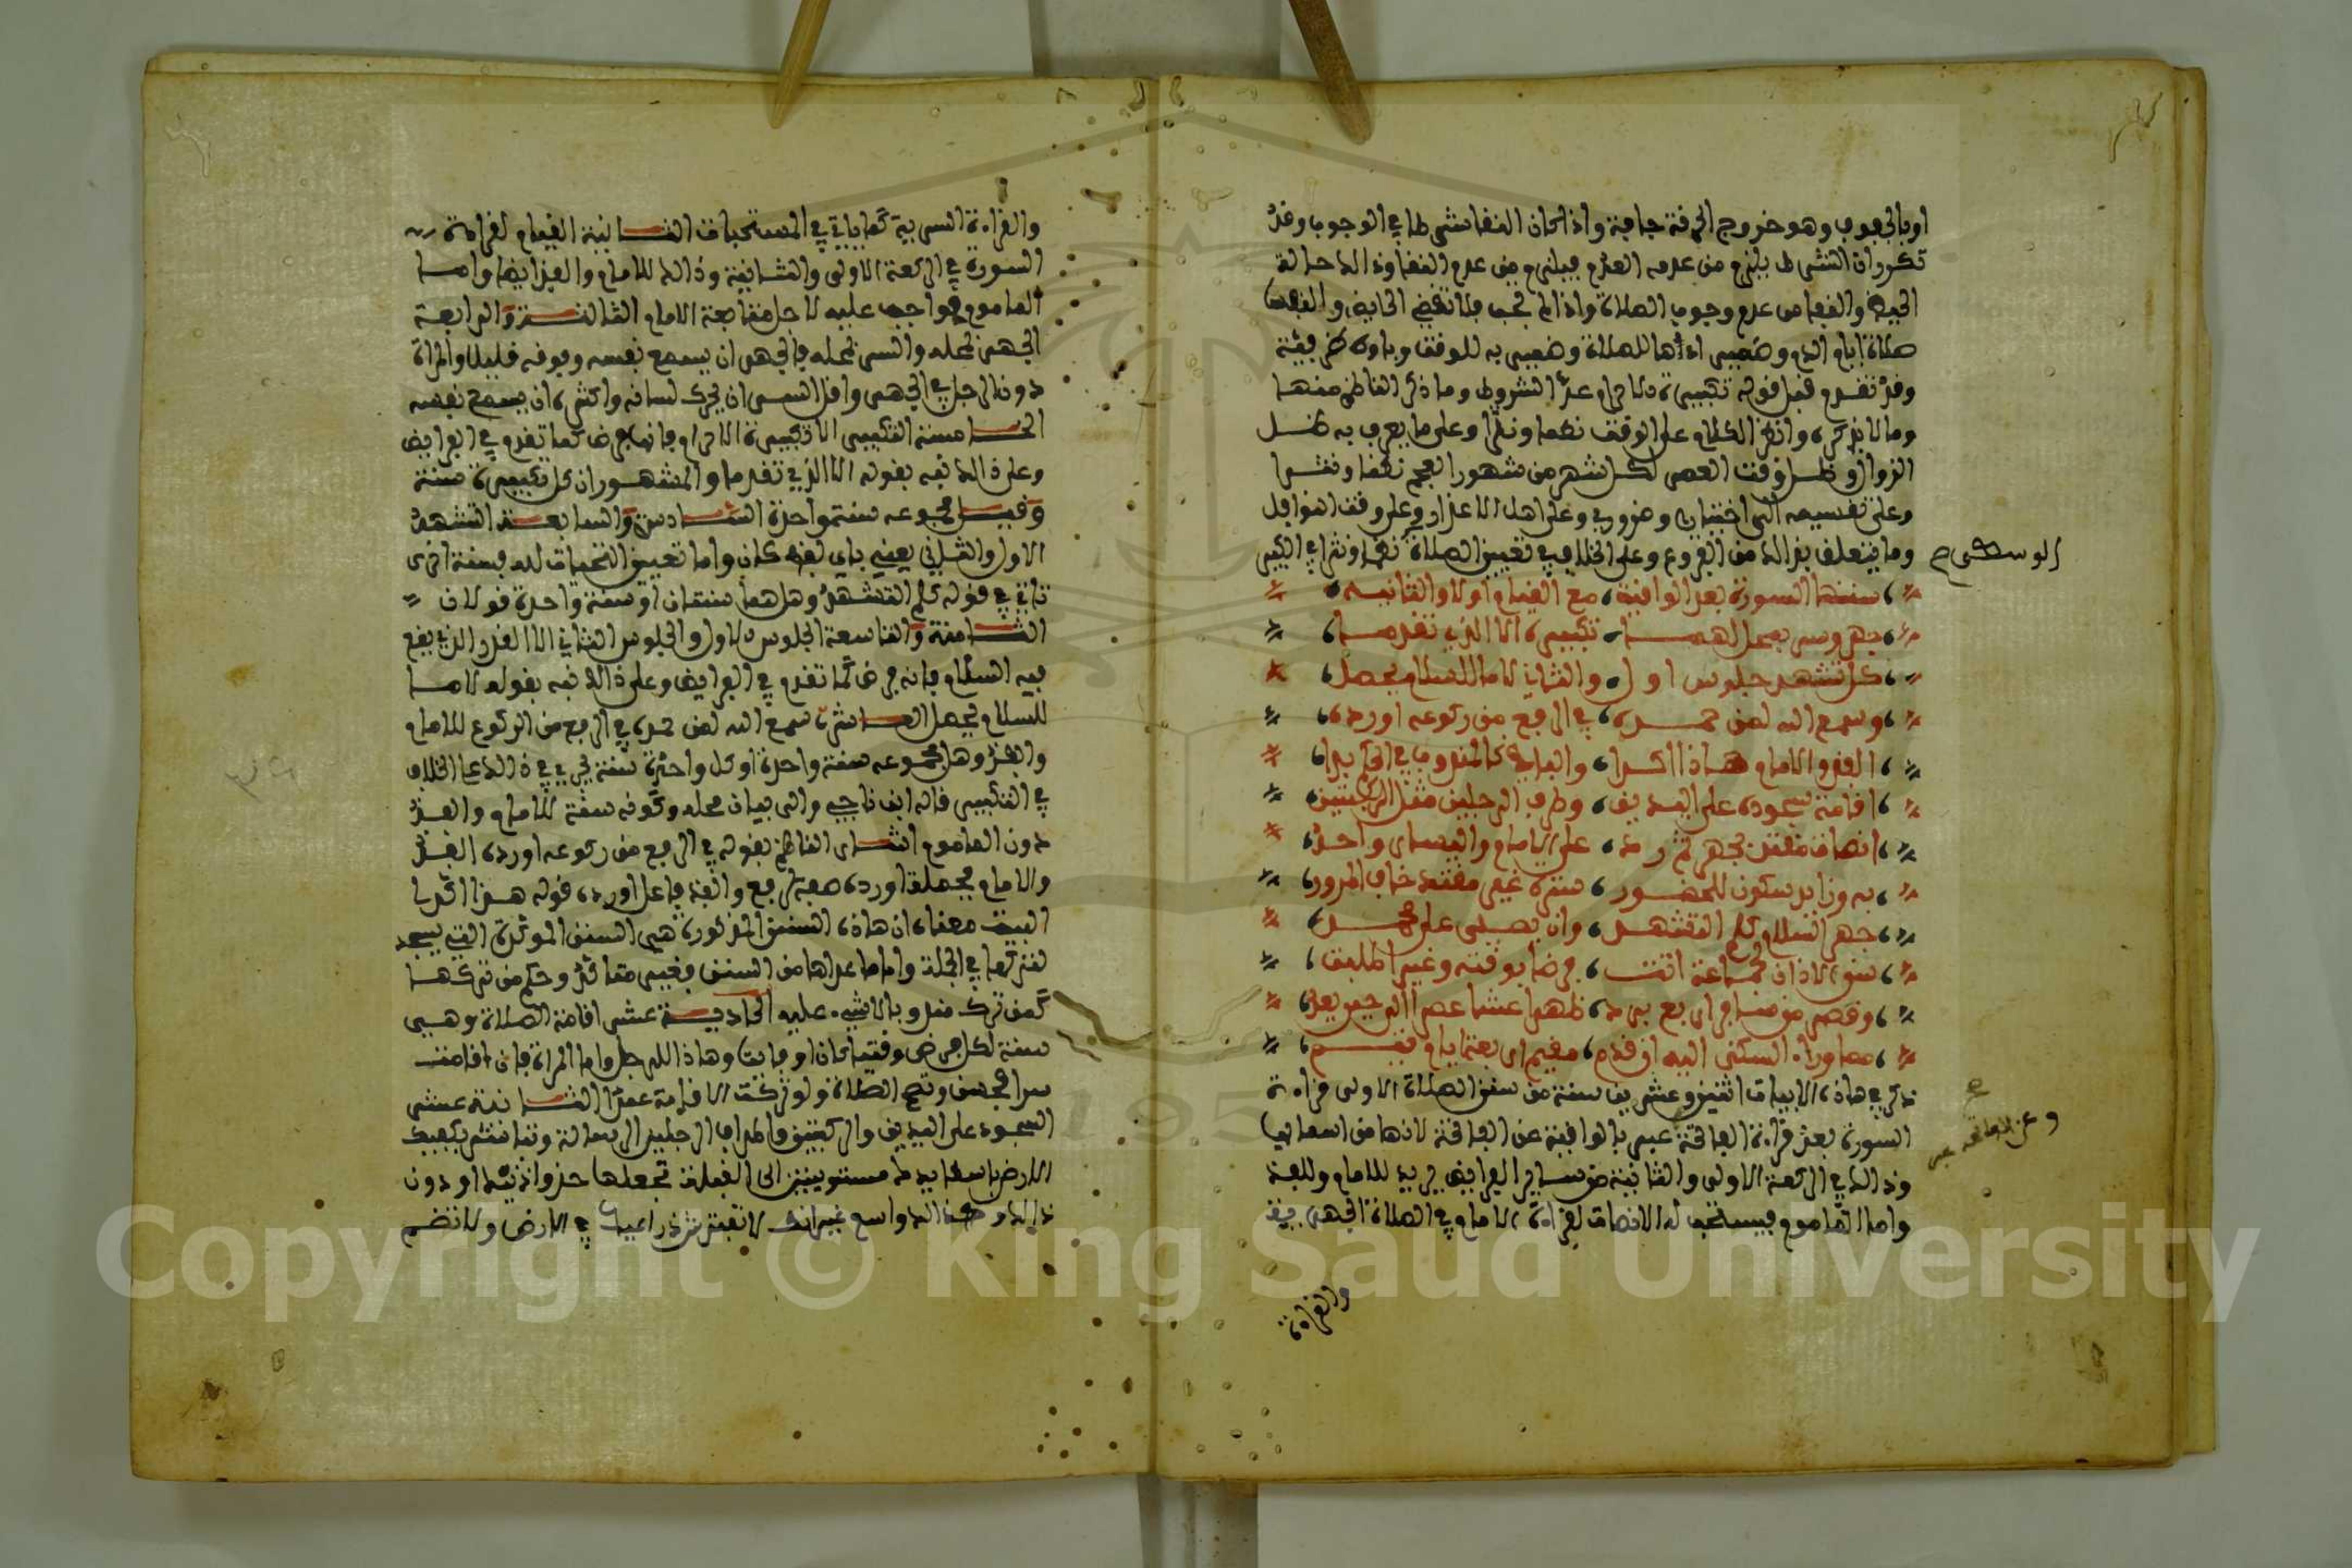 او بالجفوف وهو خروج الخرقة جافة واذا كان النقا شرطا في الوجوب وقد
تكرر ان الشرط يلزم من عدمه العدم فيلزم من عدم النقا وذالك حالة
الحيض والنفاس عدم وجوب الصلاة واذا لم تجب فلا تقضي الحايض والنفسا
صلاة ايام الدم وضمير اداها للصلاة وضمير به للوقت
وقد تقدم قبل قوله تكبيرة الاحرام عد الشروط وما ذكر الناظم منها
وما لا يذكره وانظر الكلام على الوقت نظما ونثرا وعلى ما يعرف به ظل
الزوال وظل وقت العصر لكل شهر من شهور العجم نظما ونثرا
وعلى تقسيمه الى اختياري وضروري وعلى اهل الاعذار وعلى وقت النوافل
وما يتعلق بذالك من الفروع وعلى الخلاف في تعيين الصلاة نظما ونثرا في الكبير
الوسطى صح
سننها السورة بعد الواقية، مع القيام اولا والثانيه،
جهر وسر بمحل لهما، تكبيره الا الذي تقدما،
كل تشهد جلوس اول، والثاني لا ما للسلام يحصل،
وسمع الله لمن حمده، في الرفع من ركوعه اورده،
الفذ والامام هذا اكدا، والباقي كالمندوب في الحكم بدا،
اقامة سجوده على اليدين، وطرف الرجلين مثل الركبتين،
انصات مقتد بجهر ثم رد، على الامام واليسار واحد،
به وزايد سكون للحضور، سترة غير مقتد خاف المرور،
جهر السلام كلم التشهد، وان يصلي على محمد،
سن الاذان لجماعة اتت، فرضا بوقته وغيرا طلبت،
وقصر من سافر اربع برد، ظهرا عشا عصرا الى حين يعد،
مما ورا السكنى اليه ان قدم، مقيم اربعة ايام يتم،
ذكر في هاذه الابيات اثنين وعشرين سنة من سنن الصلاة الاولى قراءة
السورة بعد قراءة الفاتحة عبر بالواقية عن الفاتحة لانها من اسمائها
وذالك في الركعة الاولى والثانية من ساير الفرايض يريد للامام وللفذ
واما الماموم فيستحب له الانصات لقراءة الامام في الصلاة الجهرية
والقراءة
والقراءة السرية كما ياتي في المستحبات الثانية القيام لقراءة
السورة في الركعة الاولى والثانية وذالك للامام والفذ ايضا واما
الماموم فواجب عليه لاجل متابعة الامام الثالثة والرابعة
الجهر بمحله والسر بمحله فالجهر ان يسمع نفسه وفوقه قليلا والمراة
دون الرجل في الجهر واقل السر ان يحرك لسانه واكثره ان يسمع نفسه
الخامسة التكبير الا تكبيرة الاحرام فانها فرض كما تقدم في الفرايض
وعلى ذالك نبه بقوله الا الذي تقدما والمشهور ان كل تكبيرة سنة
وقيل مجموعه سنة واحدة السادسة والسابعة التشهد
الاول والثاني يعني باي لفظ كان واما تعيين التحيات لله فسنة اخرى
تاتي في قوله كلم التشهد وهل هما سنتان او سنة واحدة قولان
الثامنة والتاسعة الجلوس الاول والجلوس الثاني الا القدر الذي يقع
فيه السلام فانه فرض كما تقدم في الفرايض وعلى ذالك نبه بقوله لا ما
للسلام يحصل العاشرة سمع الله لمن حمده في الرفع من الركوع للامام
والفذ وهل مجموعه سنة واحدة او كل واحدة سنة يجري في ذالك الخلاف
في التكبير قاله ابن ناجي والى بيان محله وكونه سنة للامام والفذ
دون الماموم اشار الناظم بقوله في الرفع من ركوعه اورده الفذ
والامام فجملة اورده صفة لرفع والفذ فاعل اورده قوله هذا اكدا
البيت معناه ان هاذه السنن المذكورة هي السنن الموكدة التي يسجد
لتركها في الجملة واما ما عداها من السنن فغير متاكد وحكم من تركها
كمن ترك مندوبا لا شيء عليه الحادية عشر اقامة الصلاة وهي
سنة لكل فرض وقتيا كان او فايتا وهاذا للرجل واما المراة فان اقامت
سرا فحسن وتصح الصلاة ولو تركت الاقامة عمدا الثانية عشر
السجود على اليدين والركبتين واطراف الرجلين الرسالة وتباشر بكفيك
الارض باسطا يديك مستويتين الى القبلة تجعلها حذو اذنيك او دون
ذالك وكل ذالك واسع غير انك لا تفترش ذراعيك في الارض ولا تضم
Copyright © King Saud University